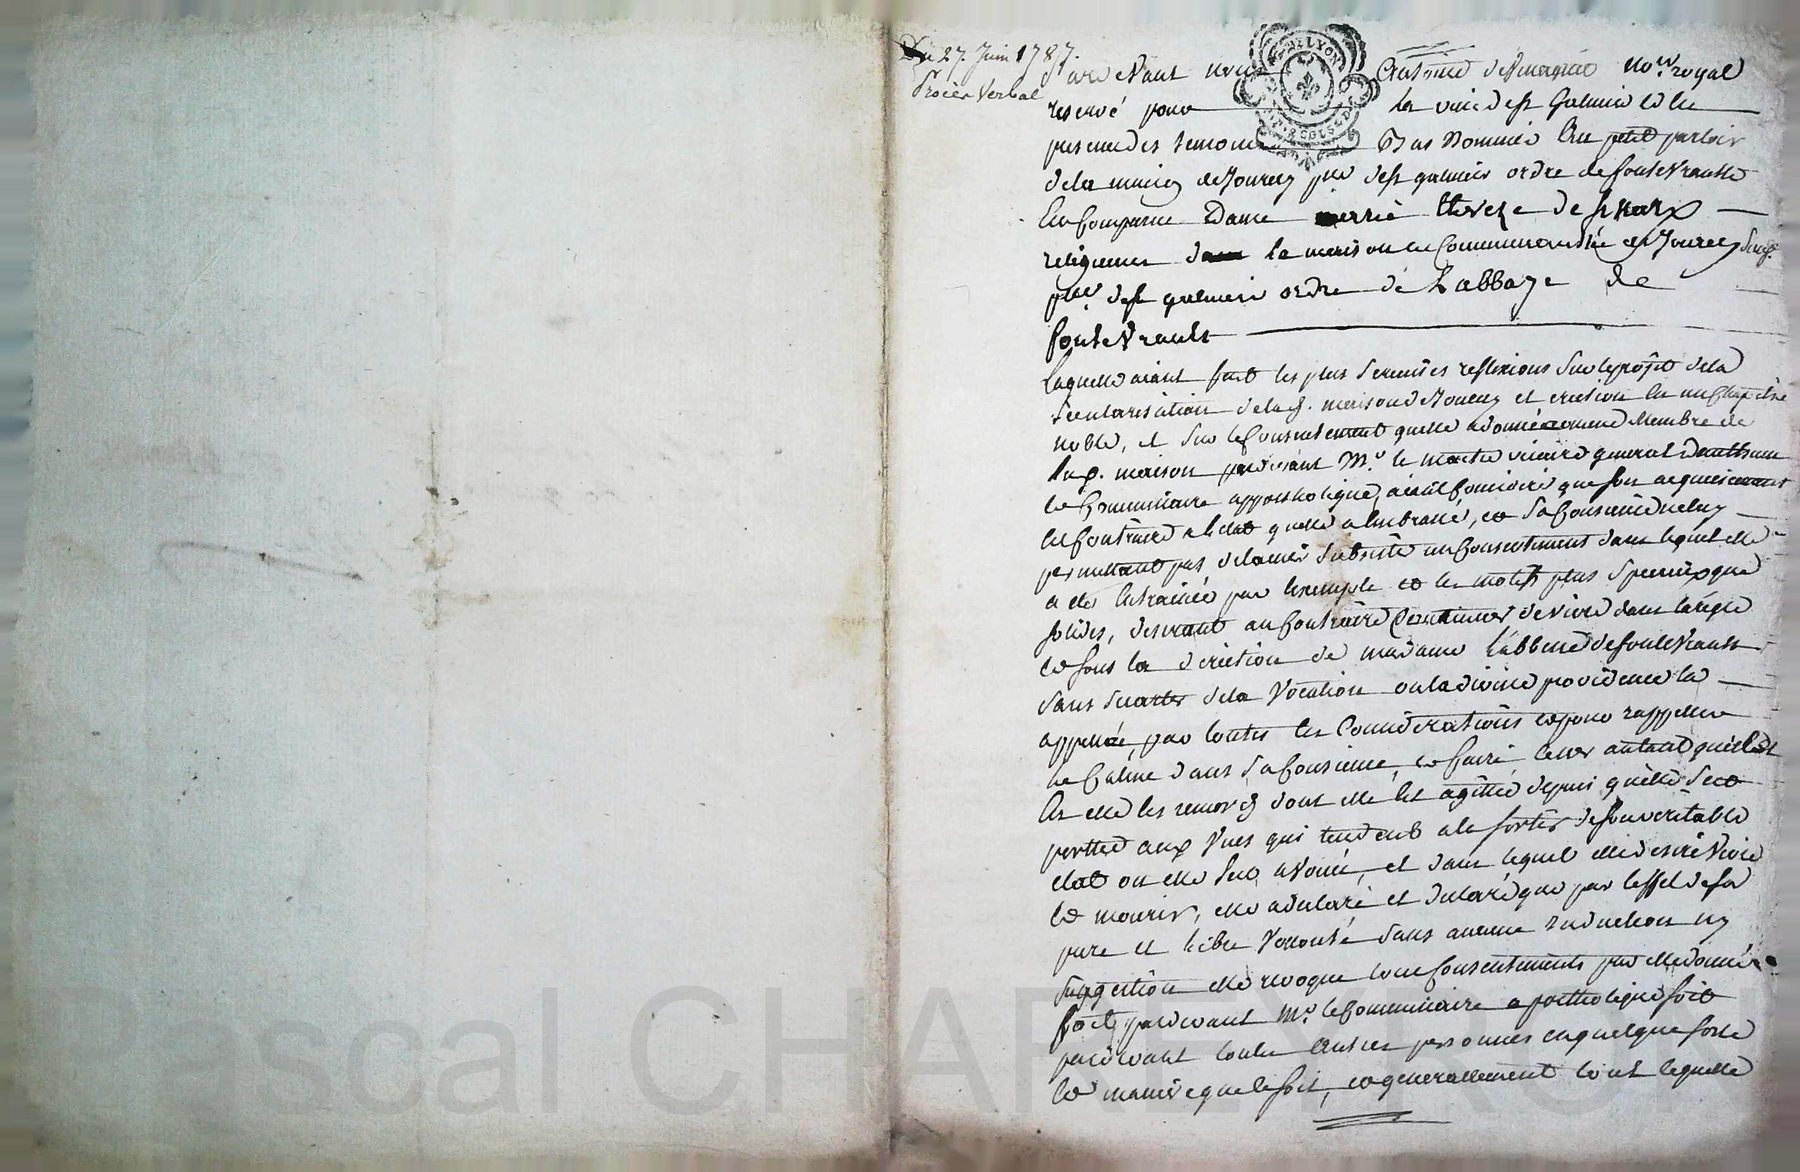 Du 27. Juin 1787.
Procès Verbal
Pardevant nous Antoine no.re royal
reservé pour la ville de st Galmier et en
presence des temoins Bas Nommés Au petit parloir
de la maison de Jourcey p.sse de st galmier ordre de fontevrault
En Comparue Dame thereze de
religieuse dans la maison en Communauté de Jourcey susd.e
p.sse de st galmier ordre de L'abbaye de
fontevrault
Laquelle aiant fait les plus serieuses reflexions sur le projet de la
secularisation de lad. maison de Jourcey et erection en un Chapitre
noble, et sur le Consentement quelle a donné comme Membre de
lad. maison pardevant Mr. le vicaire general
le Commissaire appostholique, aiant Consideré que son acquiescement
est Contraire a l'etat quelle a Embrassé, et sa Conscience ne luy
permettant pas de laisser subsister un Consentement dans lequel elle
a été Entrainée par lexemple et les motifs plus specieux que
solides, desirant au Contraire Continuer de vivre dans la regle
et sous la direction de madame L'abbesse de fontevrault
sans s'ecarter de la Vocation ou la divine providence la
appellée, par toutes les Considerations et pour rappeller
le Calme dans sa Consience, et faire cesser autant qu'il est
En elle les remords dont elle Est agittée depuis quelle s'est
prettée aux Vues qui tendent a la sortir de son veritable
etat ou elle s'est avouée, et dans lequel elle desire Vivre
et mourir, elle a declaré et declare que par l'effet de sa
pure et libre Vollonté sans aucune induction ny
suggestion elle revoque tous Consentements par elle donnés
soit pardevant Mr. le Commissaire apostholique soit
pardevant toutes Autres personnes en quelque sorte
et maniere que se soit, et generallement tout ce quelle
Pascal CHAREYRON